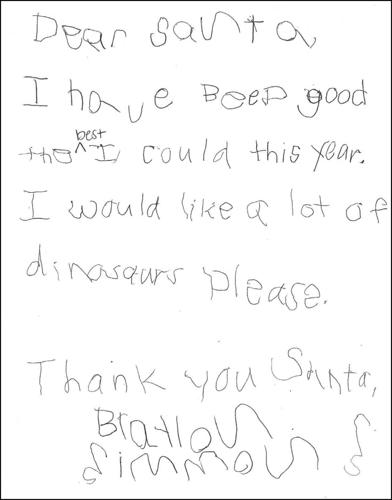 Dear Santa,
I have Been good
the best I could this year.
I would like a lot of
dinosaurs please.
Thank you Santa,
Braylon
Simmons